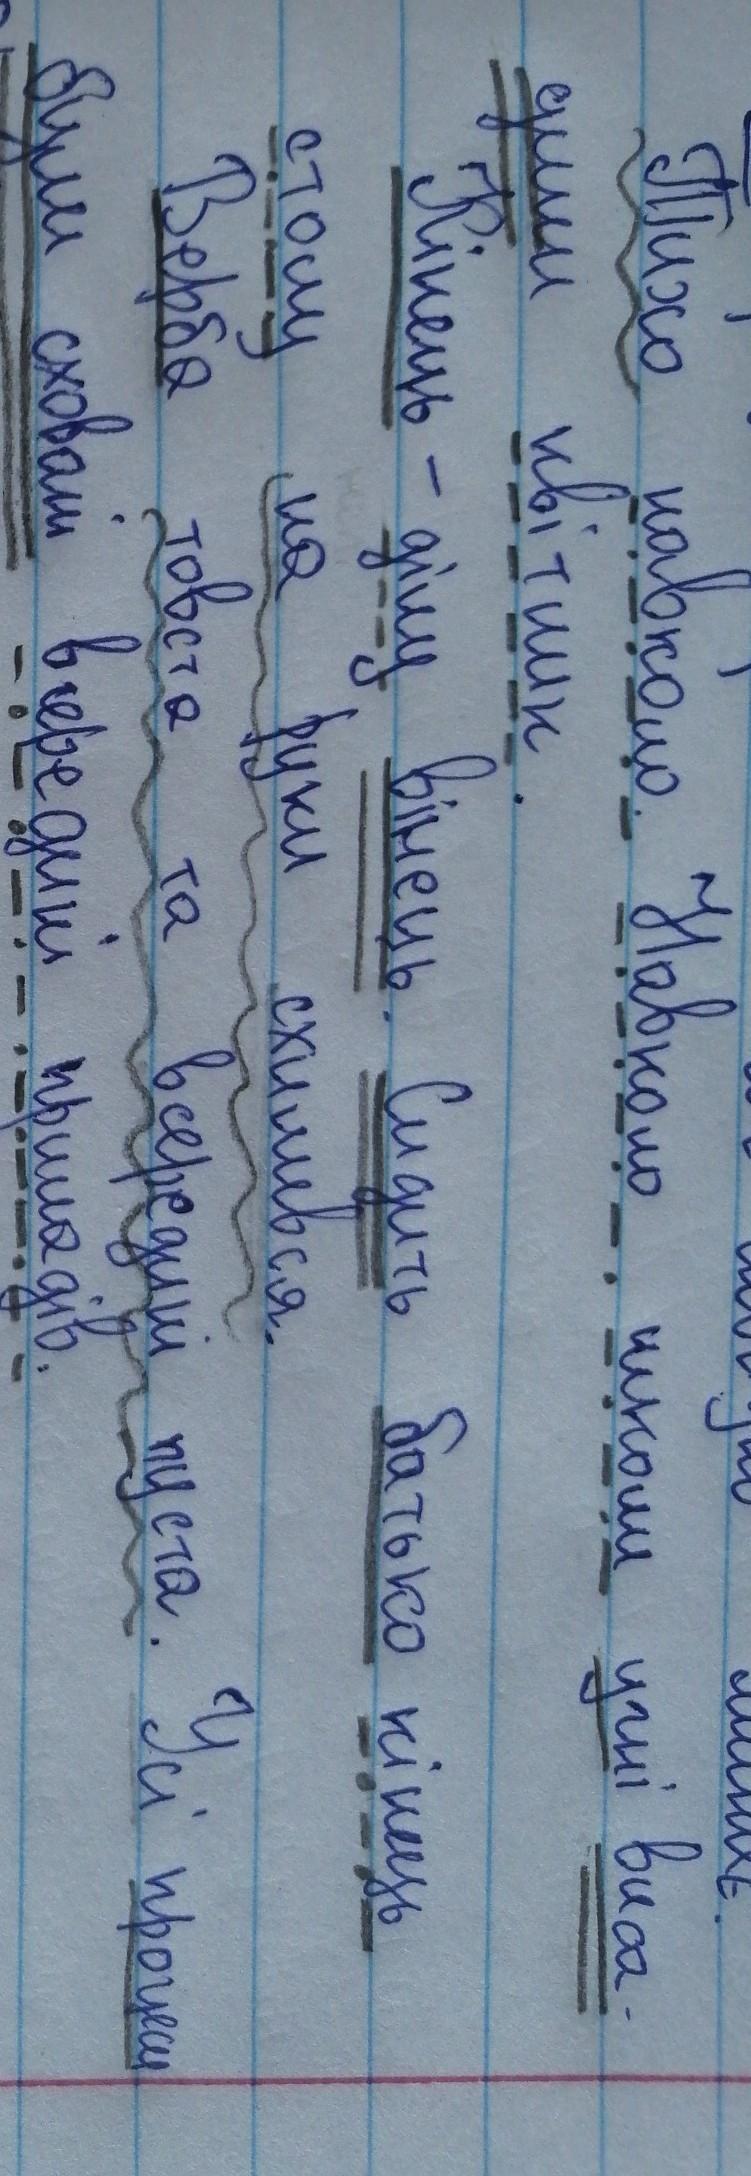 Тихо навколо. Навколо школи учні виса-
дили квітник.
Кінець - ділу вінець. Сидить батько кінець
столу на руки схилився.
Верба товста та всередині пуста. Усі процеси
були сховані всередині приладів.